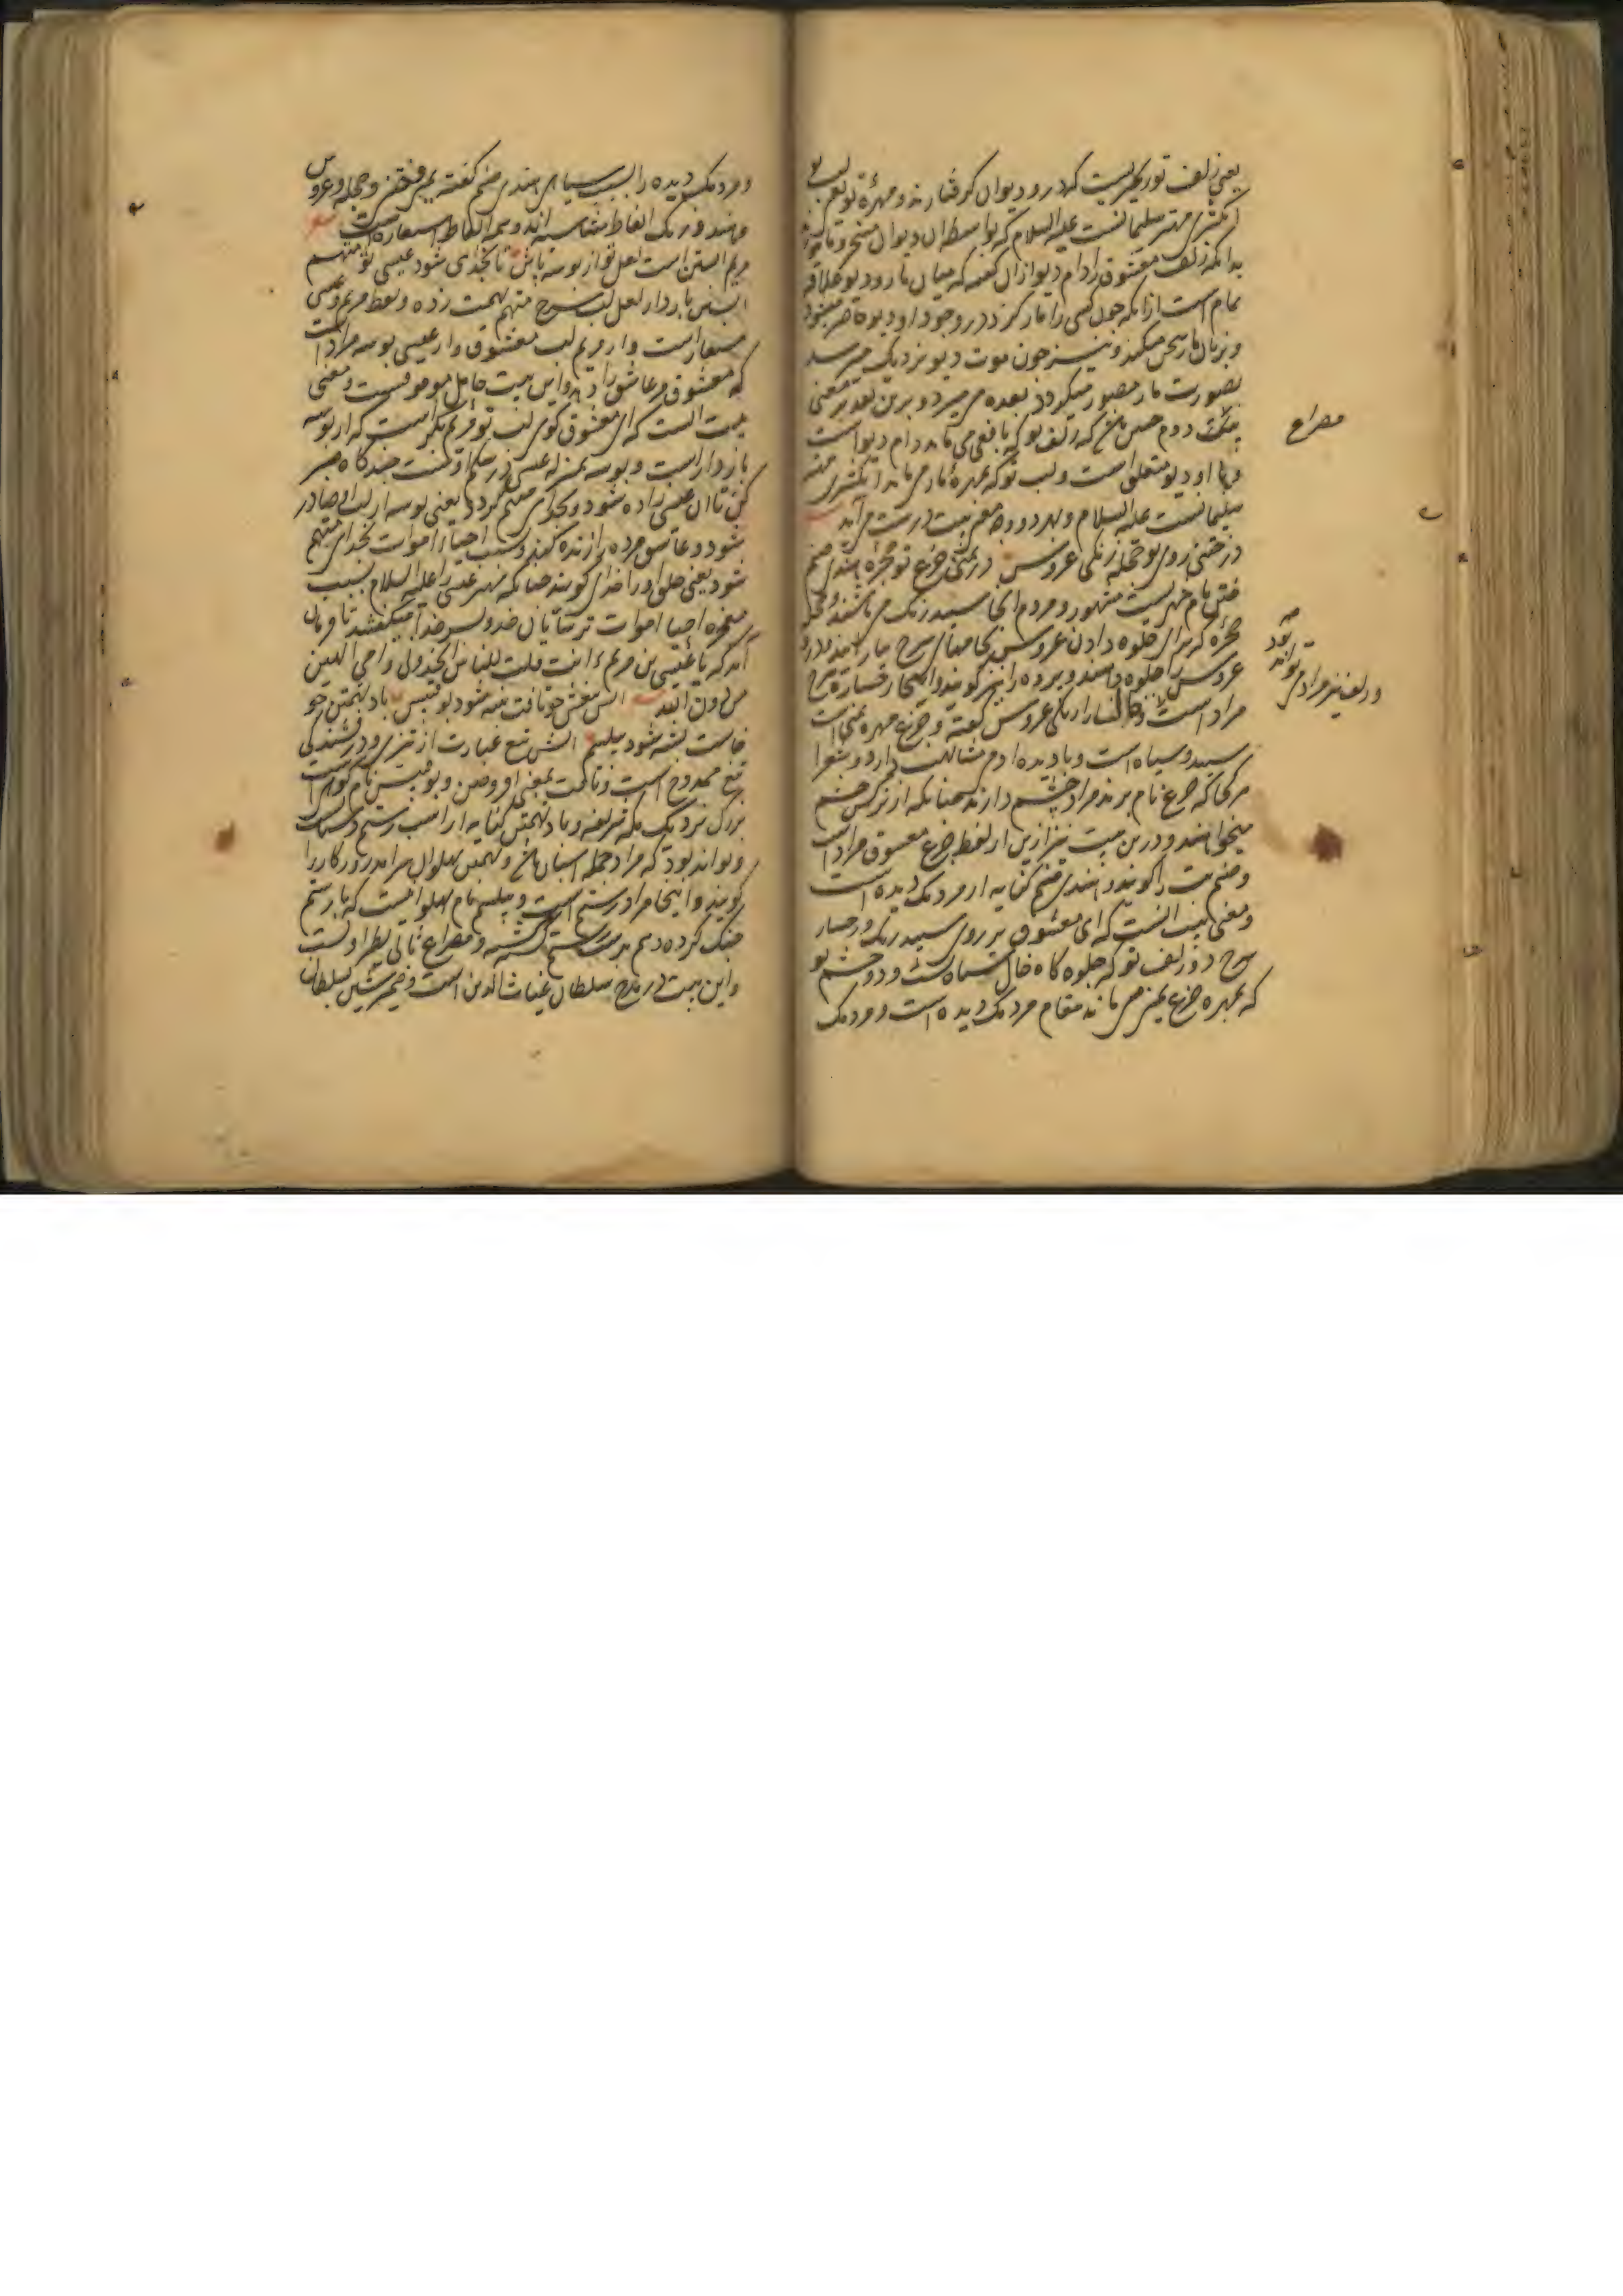 یعنی زلف تو زنجیریست که درو دیوان گرفتارند و مهرهٔ تو یعنی لب تو
انگشتری مهتر سلیمانست علیه السلام که بواسطه آن دیوان مسخر
بدانکه زلف معشوق را دام دیو ازان گفته که میان مار و دیو علاقه
تمام است ازانکه چون کسی را مار گزد در وجود او دیو حاضر میشود
و بزبان مار سخن میکند و نیز چون موت دیو نزدیک میرسد
بصورت مار مصور میگردد بعده می میرد و برین تقدیر معنی
بیت دوم چنین باشد که زلف تو که بافعی می ماند دام دیو است
و با او دیو متعلق است و لب تو که بمهرهٔ مار می ماند انگشتری مهتر
سلیمانست علیه السلام و بهر دو وجه معنی بیت درست می آید
در ختن روی تو حجله زنگی عروس در یمن جزع تو حجره هندی صنم
ختن نام شهریست مشهور و مردم آنجا سپید رنگ می باشند و حجله
حجره که برای جلوه دادن عروس بجامهای سرخ بیارایند و درو
عروس را جلوه دهند و پرده را نیز گویند و اینجا رخساره سرخ
مراد است و خال رخسار را زنگی عروس گفته و جزع مهره یمنی است
سپید و سیاه است و با دیده آدم مشابهت دارد و شعرا
هر کجا که جزع نام برند مراد چشم دارند همچنانکه از نرگس چشم
میخواهند و درین بیت نیز ازین از لفظ جزع معشوق مراد است
و صنم بت را گویند و هندی صنم کنایه از مردمک دیده است
و معنی بیت آنست که ای معشوق بر روی سپید رنگ و رخسار
سرخ و زلف تو که جلوه گاه خال سیاه است و دو چشم تو
که بمهره جزع یمنی می ماند مقام مردمک دیده است و مردمک
مصراع
و زلف نیز مراد می تواند بود
و مردمک دیده را بسبب سیاهی هندی صنم گفته یمن و ختن و حجله و عروس
و هند و زنگ الفاظ متناسبه اند و همه الفاظ استعاره است
مریم آبستن است لعل تو از بوسه باش تا بخدای شود عیسی تو متهم
آبستن باردار لعل لب سرخ متهم تهمت زده و لفظ مریم و عیسی
مستعار است و از مریم لب معشوق و از عیسی بوسه مراد است
که معشوق مر عاشق را دهد و این بیت حامل موقوفست و معنی
بیت آنست که ای معشوق گوی لب تو مریم بکر است که از بوسه
باردار است و بوسه بمنزله عیسی در شکم اوست چند گاه صبر
کن تا آن عیسی زاده شود و بخدای متهم گردد یعنی بوسه از لب او صادر
شود و عاشق مرده را زنده کند و بسبب احیاء اموات بخدای متهم
شود یعنی خلق او را خدای گویند چنانکه مهتر عیسی را علیه السلام بسبب
معجزه احیا اموات ترسایان خدا و پسر خدا میگفتند تا فرمان
آمد که یا عیسی بن مریم ءانت قلت للناس اتخذونی و امی الهین
من دون الله آتش تیغش چو تافت پشه شود بوقبیس باد تهمتن چو
خاست پشه شود پیلسم آتش تیغ عبارت از تیزی و درخشندگی
تیغ ممدوح است و تافت بمعنی افروختن و بوقبیس نام کوهی است
بزرگ نزدیک مکه شریفه و باد تهمتن کنایه از اسب رستم دستان
و تواند بود که مراد حمله اسبان باشد و تهمتن پهلوان سرآمد روزگار را
گویند و اینجا مراد رستم است و پیلسم نام پهلوانیست که با رستم
جنگ کرده و هم بدست رستم کشته و مصراع ثانی نظر اوست
و این بیت در مدح سلطان غیاث الدین است و ضمیر شین بسلطان